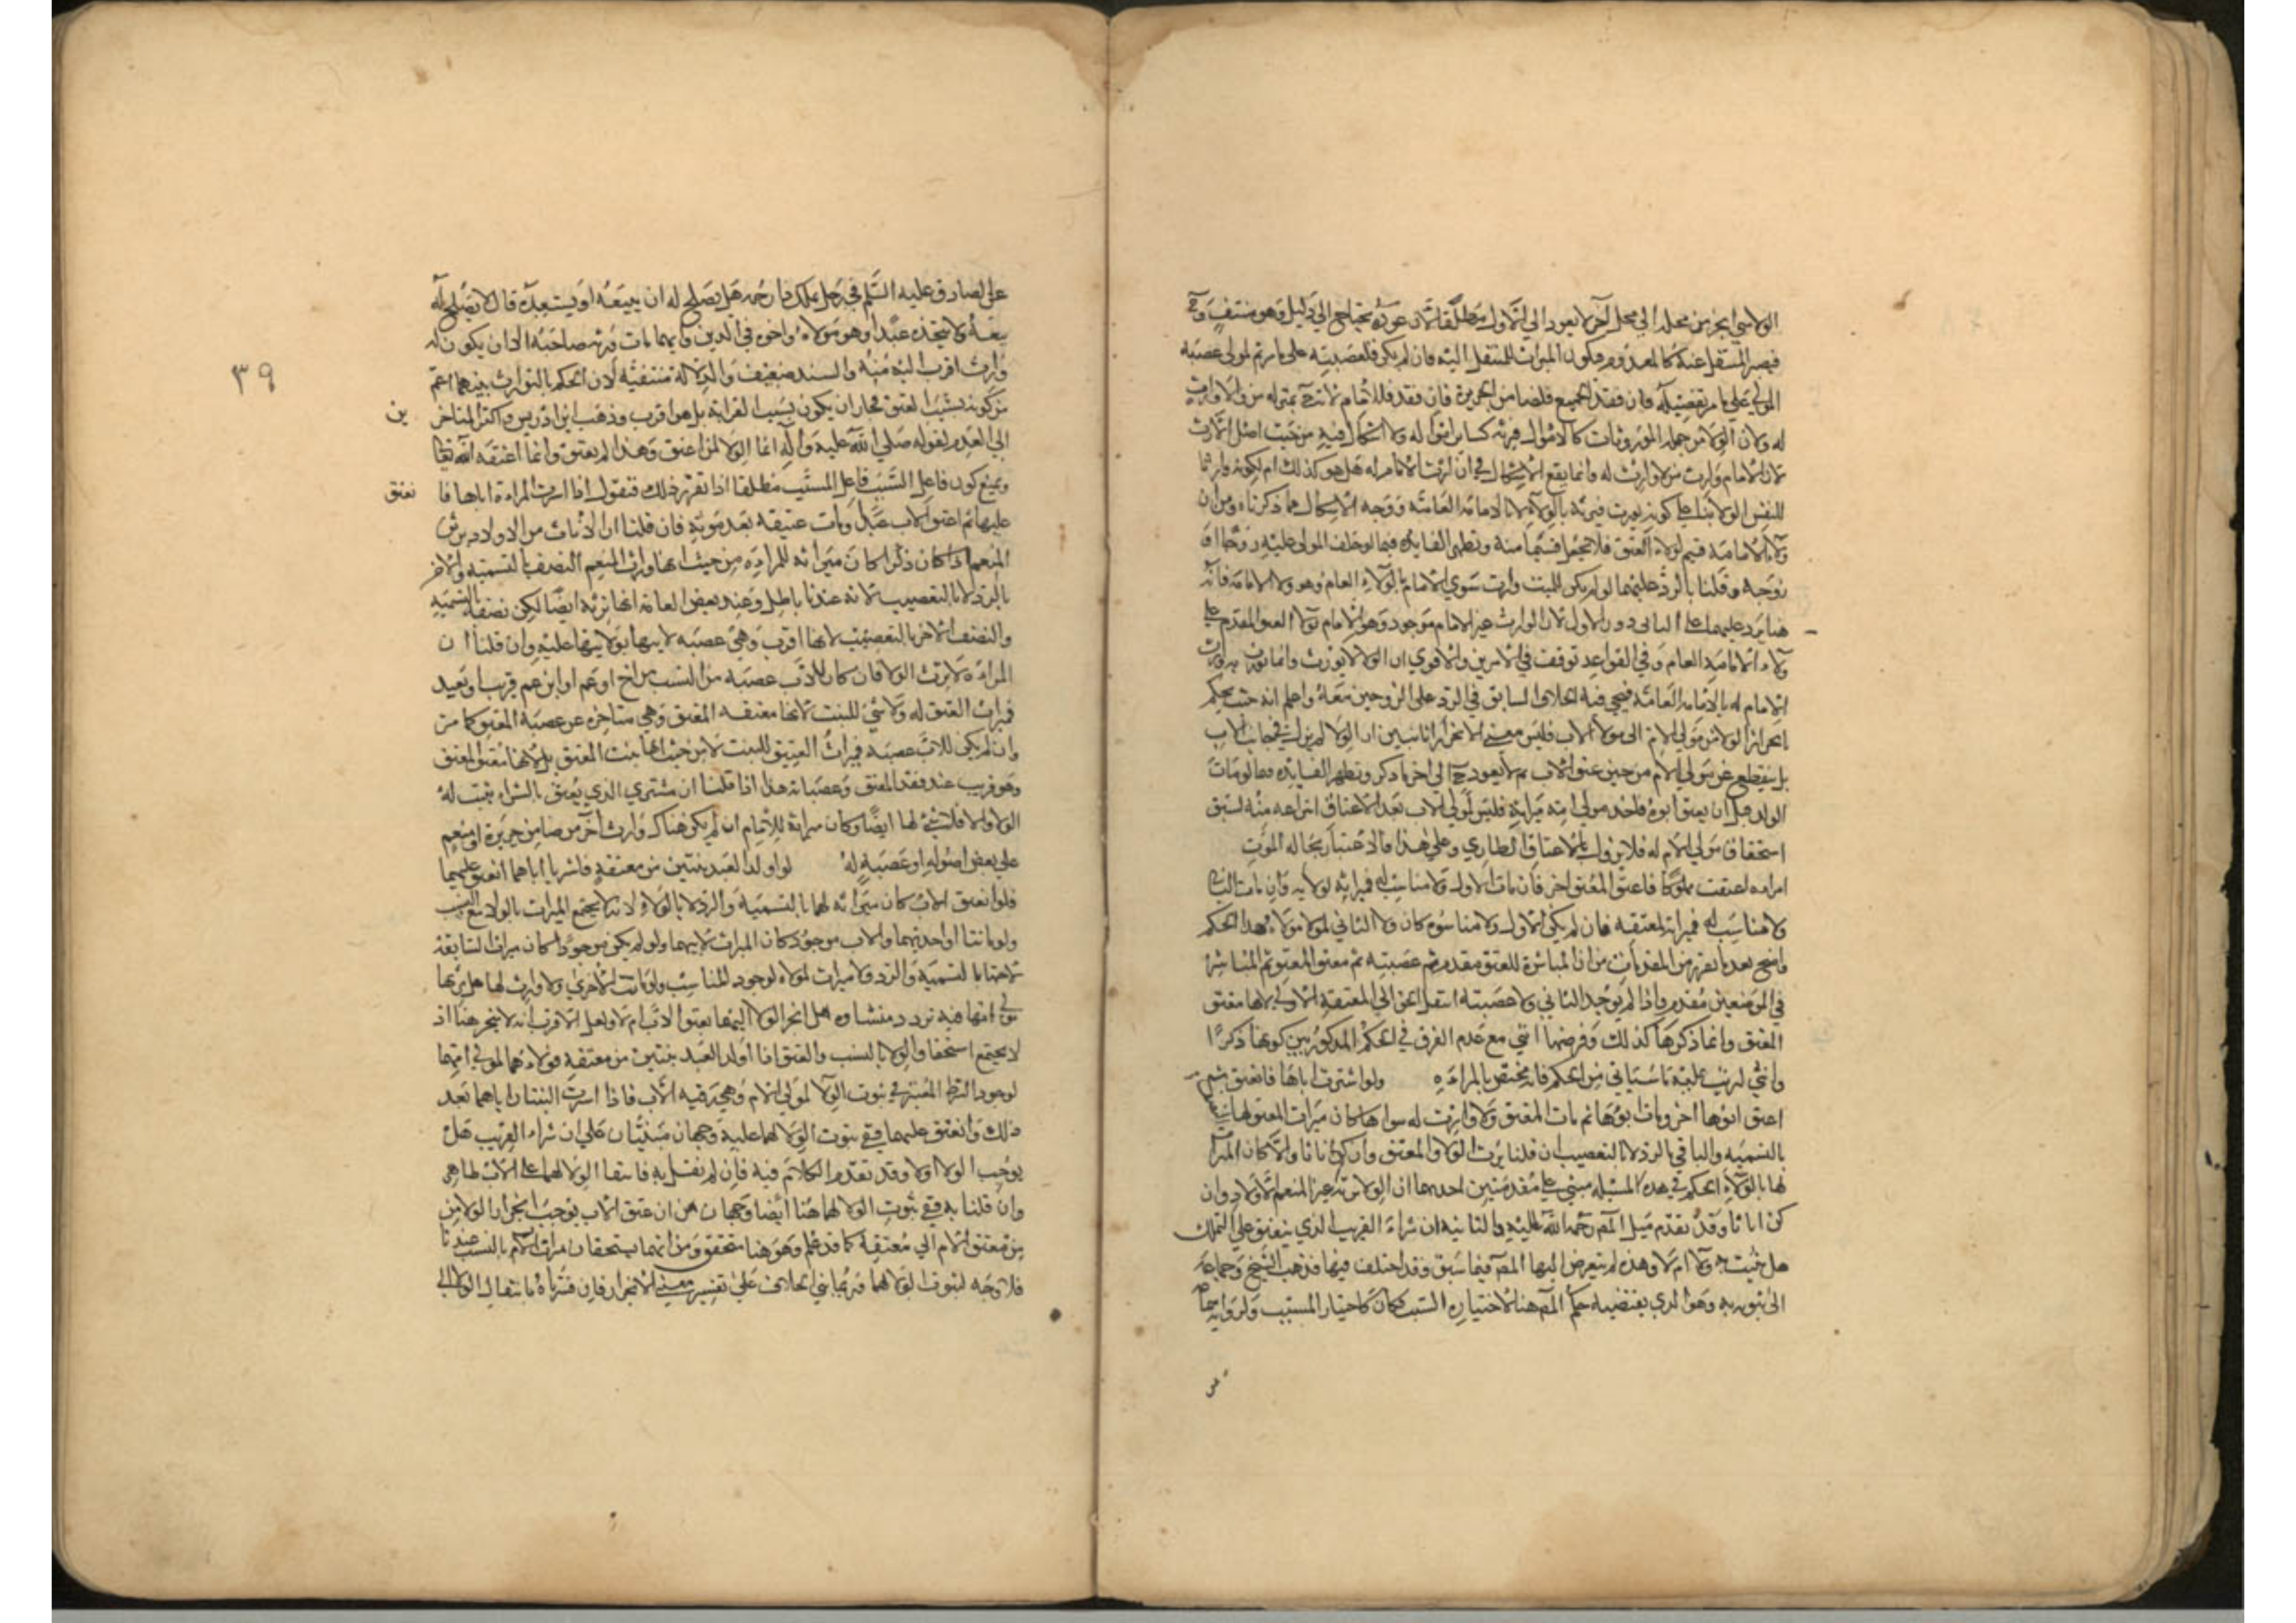 الولا متى انجر من محله الى محل آخر لا يعود الى الاول مطلقا لان عوده يحتاج الى دليل وهو منتف وح
فيصير المنتقل عنه كالمعدوم فيكون الميراث للمنتقل اليه فان لم يكن فلعصبته على ما مر ثم لمولى عصبة
المولى على ما مر تفصيله فان فقد الجميع فلضامن الجريرة فان فقد فللامام لانه ح بمنزلة من لا وارث
له ولان الولا من جملة الموروثات كالاموال فيرثه كسائر امواله ولا اشكال فيه من حيث اصل الارث
لان الامام وارث من لا وارث له وانما يقع الاشكال في ان ارث الامام له هل هو كذلك ام لكونه وارثا
لنفس الولا بناء على كونه يورث فيرثه بالولاء لا بالامامة العامة ووجه الاشكال مما ذكرناه ومن ان
ولاء الامامة قسيم لولاء العتق فلا يجعل قسما منه وتظهر الفايدة فيما لو خلف المولى عليه زوجا او
زوجة وقلنا بالرد عليهما لو لم يكن للميت وارث سوى الامام بالولاء العام وهو ولا الامامة فانه
هنا يرد عليهما على الثاني دون الاول لان الوارث غير الامام موجود وهو الامام بولا العتق المقدم على
ولاء الامامة العام وفي القواعد توقف في الامرين والاقوى ان الولا لا يورث وانما يورث به وارث
الامام له بالامامة العامة فيجى فيه الخلاف السابق في الرد على الزوجين معه واعلم انه حيث يحكم
بانجرار الولا من مولى الام الى مولا الاب فليس معنى الانجرار انا نتبين ان الولا لم يزل في جانب الاب
بل ينقطع عن مولى الام من حين عتق الاب ثم لا يعود ح الى اخر ما ذكر وتظهر الفايدة فيما لو مات
الولد قبل ان يعتق ابوه فاخذ مولى امه ميراثه فليس لمولى الاب بعد الاعتاق انتزاعه منه لسبق
استحقاق مولى الام له فلا يزول بالاعتاق الطاري وعلى هذا فالاعتبار بحالة الموت
امراة اعتقت مملوكا فاعتق المعتق اخر فان مات الاول ولا مناسب له فميراثه لمولاته وان مات الثاني
ولا مناسب له فميراثه لمعتقه فان لم يكن الاول ولا مناسبوه كان ولا الثاني لمولا مولاه هذا الحكم
واضح بعد ما تقرر من المقدمات من ان المباشرة للعتق مقدم ثم عصبته ثم معتق المعتق ثم المباشر
في الموضعين مقدم واذا لم يوجد الثاني ولا عصبته انتقل الحق الى المعتقة الاولى لانها معتق
المعتق وانما ذكرها كذلك وفرضها انثى مع عدم الفرق في الحكم المذكور بين كونها ذكرا
وانثى لترتب عليه ما سياتي من الحكم فانه مختص بالمراة ولو اشترت اباها فانعتق ثم
اعتق ابوها اخر ومات ابوها ثم مات المعتق ولا وارث له سواها كان ميراث المعتق لها
بالتسمية والباقي بالرد لا بالتعصيب ان قلنا يرث الولا ولد المعتق وان كن اناثا والا كان الميراث
لها بالولاء الحكم في هذه المسئلة مبنى على مقدمتين احديهما ان الولا ترثه غير المنعم الاولاد وان
كن اناثا وقد تقدم ميل المص رحمة الله عليه والثانية ان شراء القريب الذي ينعتق على المتملك
هل يثبت به ولا ام لا وهذه لم يتعرض اليها المص فيما سبق وقد اختلف فيها فذهب الشيخ وجماعة
الى ثبوته به وهو الذي يقتضيه حكم المص هنا لاختياره السبب فكان كاختيار المسبب ولرواية سماعة
عن الصادق عليه السلم في رجل يملك ذا رحم هل يصلح له ان يبيعه او يستعبده قال لا يصلح له
بيعه ولا يتخذه عبدا وهو مولاه واخوه في الدين وايهما مات ورثه صاحبه الا ان يكون له
وارث اقرب اليه منه والسند ضعيف والدلالة منتفية لان الحكم بالتوارث بينهما اعم
من كونه بسبب العتق فجاز ان يكون بسبب القرابة بل هو اقرب وذهب ابن ادريس واكثر المتاخرين
الى العدم لقوله صلى الله عليه واله انما الولا لمن اعتق وهذا لم يعتق وانما اعتقه الله تعالى
ونمنع كون فاعل السبب فاعل المسبب مطلقا اذا تقرر ذلك فنقول اذا اشترت المراة اباها فانعتق
عليها ثم اعتق الاب عبدا ومات عتيقه بعد موته فان قلنا ان الاناث من الاولاد يرثن
المنعم اذا كان ذكرا كان ميراثه للمراة من حيث انها وارث المنعم النصف بالتسمية والاخر
بالرد لا بالتعصيب لانه عندنا باطل وعند بعض العامة انها ترثه ايضا لكن نصفه بالتسمية
والنصف الاخر بالتعصيب لانها اقرب وهي عصبة لابيها بولايتها عليه وان قلنا ان
المراة لا ترث الولا فان كان للاب عصبة من النسب من اخ او عم او ابن عم قريب او بعيد
فميراث العتيق له ولا شئ للبنت لانها معتقة المعتق وهي متاخرة عن عصبة المعتق كما مر
وان لم يكن للاب عصبة فميراث العتيق للبنت لا من حيث انها بنت المعتق بل لانها معتق المعتق
وهو قريب عند فقد المعتق وعصباته هذا اذا قلنا ان مشتري الذي يعتق بالشراء يثبت له
الولا والا فلا شئ لها ايضا وكان ميراثه للامام ان لم يكن هناك وارث آخر من ضامن جريرة او منعم
على بعض اصوله او عصبة له لو اولد العبد بنتين من معتقة فاشتريا اباهما انعتق عليهما
فلو انعتق الاب كان ميراثه لهما بالتسمية والرد لا بالولاء لانه لا يجتمع الميراث بالولا مع النسب
ولو ماتتا او احديهما والاب موجود كان الميراث لابيهما ولو لم يكن موجودا كان ميراث السابقة
لاختها بالتسمية والرد ولا ميراث لمولاه لوجود المناسب ولو ماتت الاخرى ولا وارث لها هل يرثها
مولى امها فيه تردد منشاوه هل انجر الولا اليهما بعتق الاب ام لا ولعل الاقرب انه لا ينجر هنا اذ
لا يجتمع استحقاق الولا بالنسب والعتق اذا اولد العبد بنتين من معتقة فولاءهما لمولى امهما
لوجود الشرط المعتبر في ثبوت الولا لمولى الام وهي رقية الاب فاذا اشترت البنتان اباهما بعد
ذلك وانعتق عليهما ففي ثبوت الولا لهما عليه وجهان مبنيان على ان شراء القريب هل
يوجب الولا او لا وقد تقدم الكلام فيه فان لم نقل به فانتفا الولا لهما على الاب ظاهر
وان قلنا به ففي ثبوت الولا لهما هنا ايضا وجهان من ان عتق الاب يوجب انجرار الولا من
من معتق الام الى معتقه كما قد علم وهو هنا متحقق ومن انهما يستحقان ميراث الام بالنسب عندنا
فلا وجه لثبوت الولا لهما وربما بني الخلاف على تفسير معنى الانجرار فان فسرناه بانتقال الولا الى
٣٩